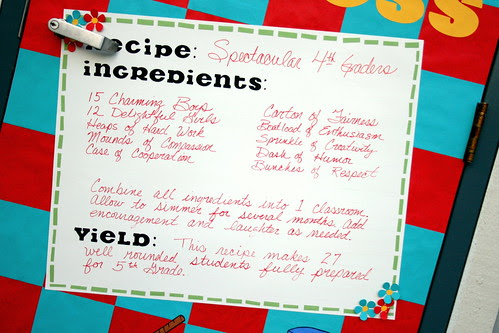 OSS
Recipe: Spectacular 4th Graders
ingredients:
15 Charming Boys
12 Delightful Girls
Heaps of Hard Work
Mounds of Compassion
Case of Cooperation
Carton of Fairness
Boatload of Enthusiasm
Sprinkle of Creativity
Dash of Humor
Bunches of Respect
Combine all ingredients into 1 classroom.
Allow to simmer for several months. Add
encouragement and laughter as needed.
Yield: This recipe makes 27
well rounded students fully prepared
for 5th Grade.